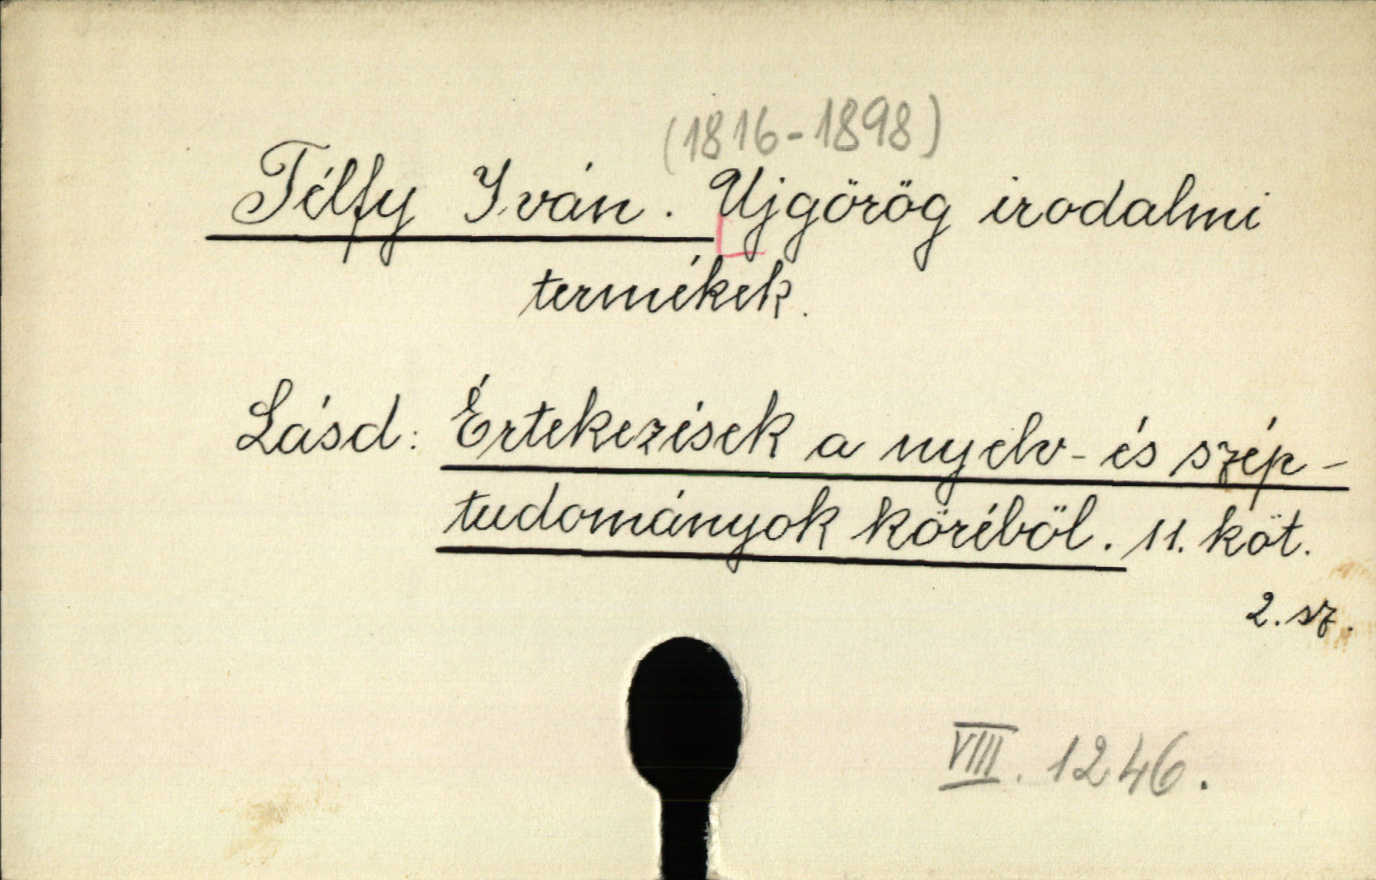 (1816-1898)
Télfy Iván. Ujgörög irodalmi
termékek.
Lásd: Értekezések a nyelv- és szép-
tudományok köréböl. 11. köt.
2. sz.
VIII. 1246.